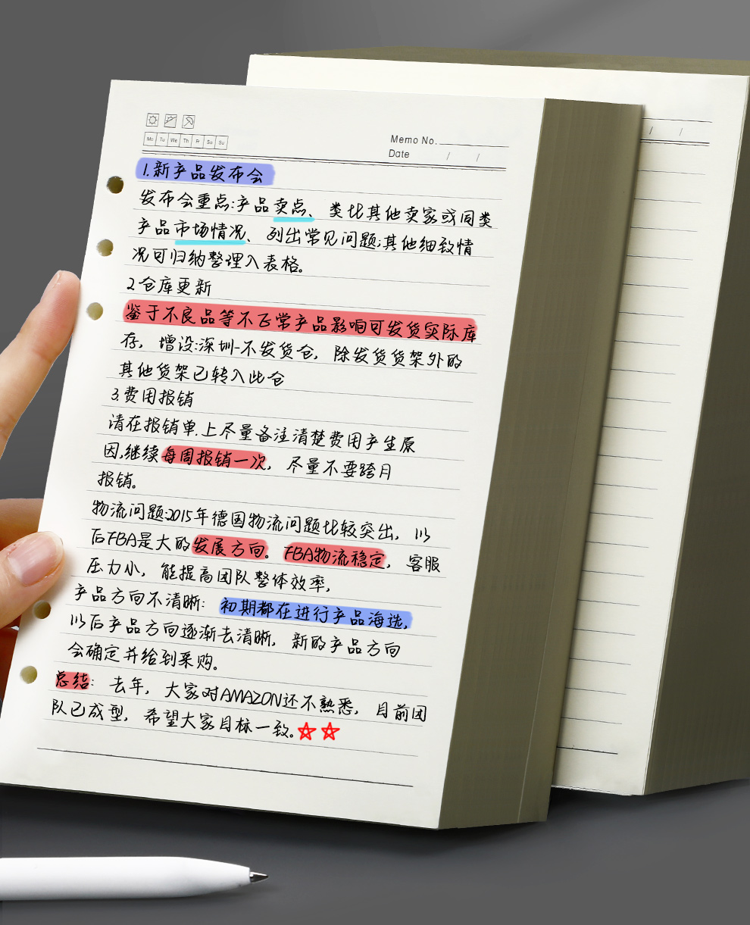 Mo Tu We Th Fr Sa Su
Memo No.
Date / /
/ /
1.新产品发布会
发布会重点:产品卖点、类比其他卖家或同类
产品市场情况、列出常见问题;其他细致情
况可归纳整理入表格。
2.仓库更新
鉴于不良品等不正常产品影响可发货实际库
存，增设:深圳-不发货仓，除发货货架外的
其他货架已转入此仓
3.费用报销
请在报销单上尽量备注清楚费用产生原
因,继续每周报销一次，尽量不要跨月
报销。
物流问题:2015年德国物流问题比较突出，以
后FBA是大的发展方向。FBA物流稳定，客服
压力小，能提高团队整体效率，
产品方向不清晰：初期都在进行产品海选，
以后产品方向逐渐去清晰，新的产品方向
会确定并给到采购。
总结：去年，大家对AMAZON还不熟悉，目前团
队已成型，希望大家目标一致。